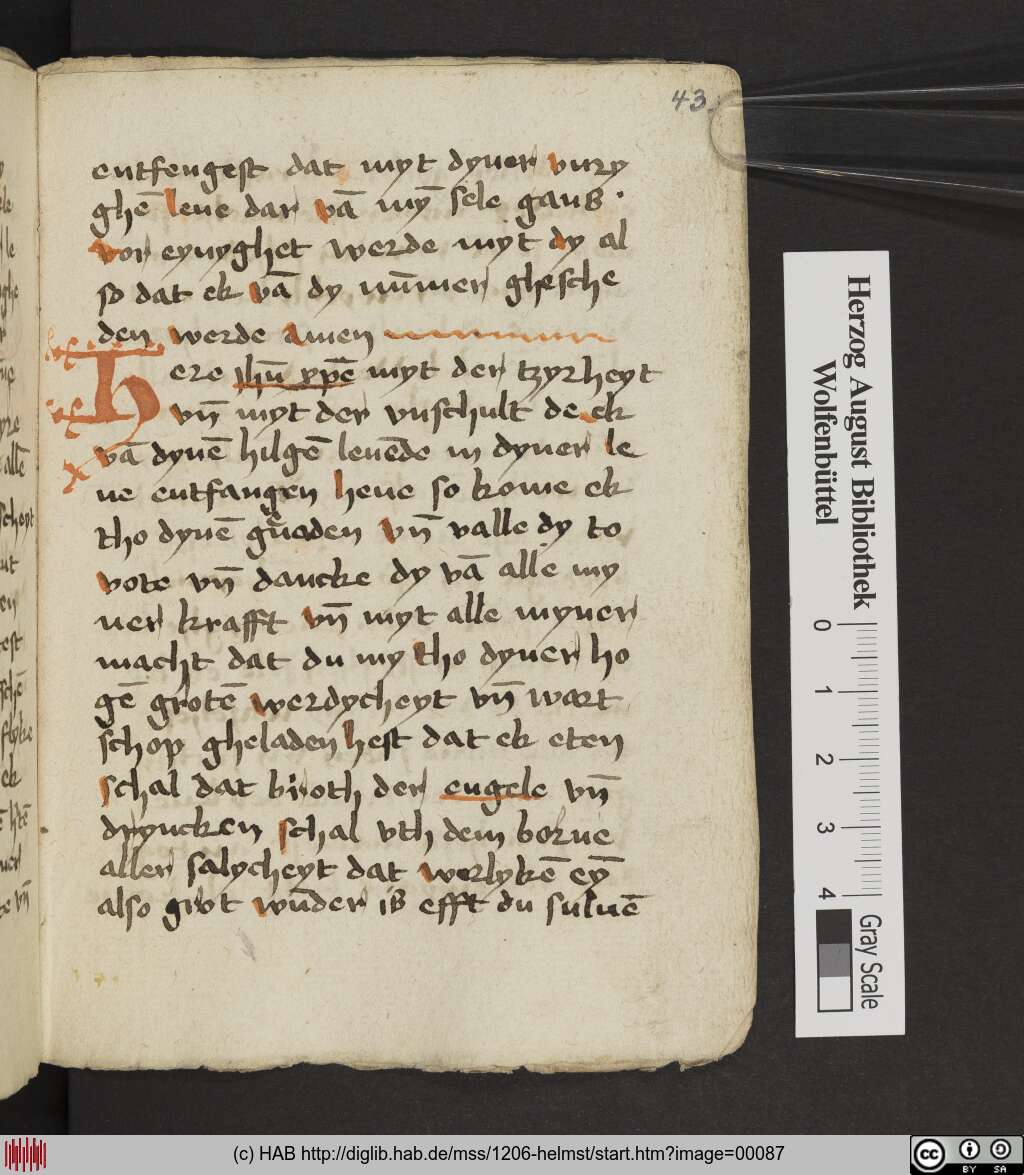 43
entfengest dat myt dyner vury
ghē leue dar vā mȳ sele gans ·
vor eynyghet werde myt dy al
so dat ek vā dy nūmer ghesche
den werde amen
Here ihū xpē myt der tzyrheyt
vn̄ myt der vnschult de ek
vā dynē hilgē leuēde in dyner le
ue entfangen heue so kome ek
tho dynē gnaden vn̄ valle dy to
vote vn̄ dancke dy vā alle my
ner krafft vn̄ myt alle myner
macht dat du my tho dyner ho
gē grotē werdycheyt vn̄ wart
schop gheladen hest dat ek eten
schal dat broth der engele vn̄
dryncken schal vth dem borne
aller salycheyt dat werlykē eȳ
also grot wūder is efft du suluē
Herzog August Bibliothek
Wolfenbüttel
0 1 2 3 4
Gray Scale
(c) HAB http://diglib.hab.de/mss/1206-helmst/start.htm?image=00087
cc BY SA